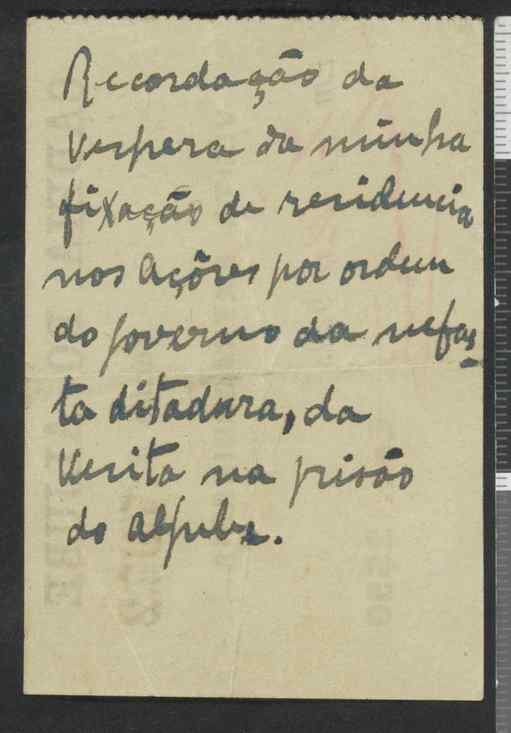 Recordação da
vespera da minha
fixação de residencia
nos Açôres por ordem
do governo da nefas-
ta ditadura, da
visita na prisão
do Aljube.